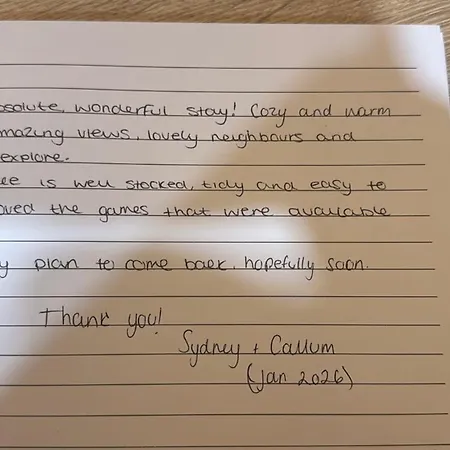 bsolute, wonderful stay! Cozy and warm
mazing views, lovely neighbours and
explore.
ee is well stocked, tidy and easy to
oved the games that were available
y plan to come back, hopefully soon.
Thank you!
Sydney + Callum
(Jan 2026)